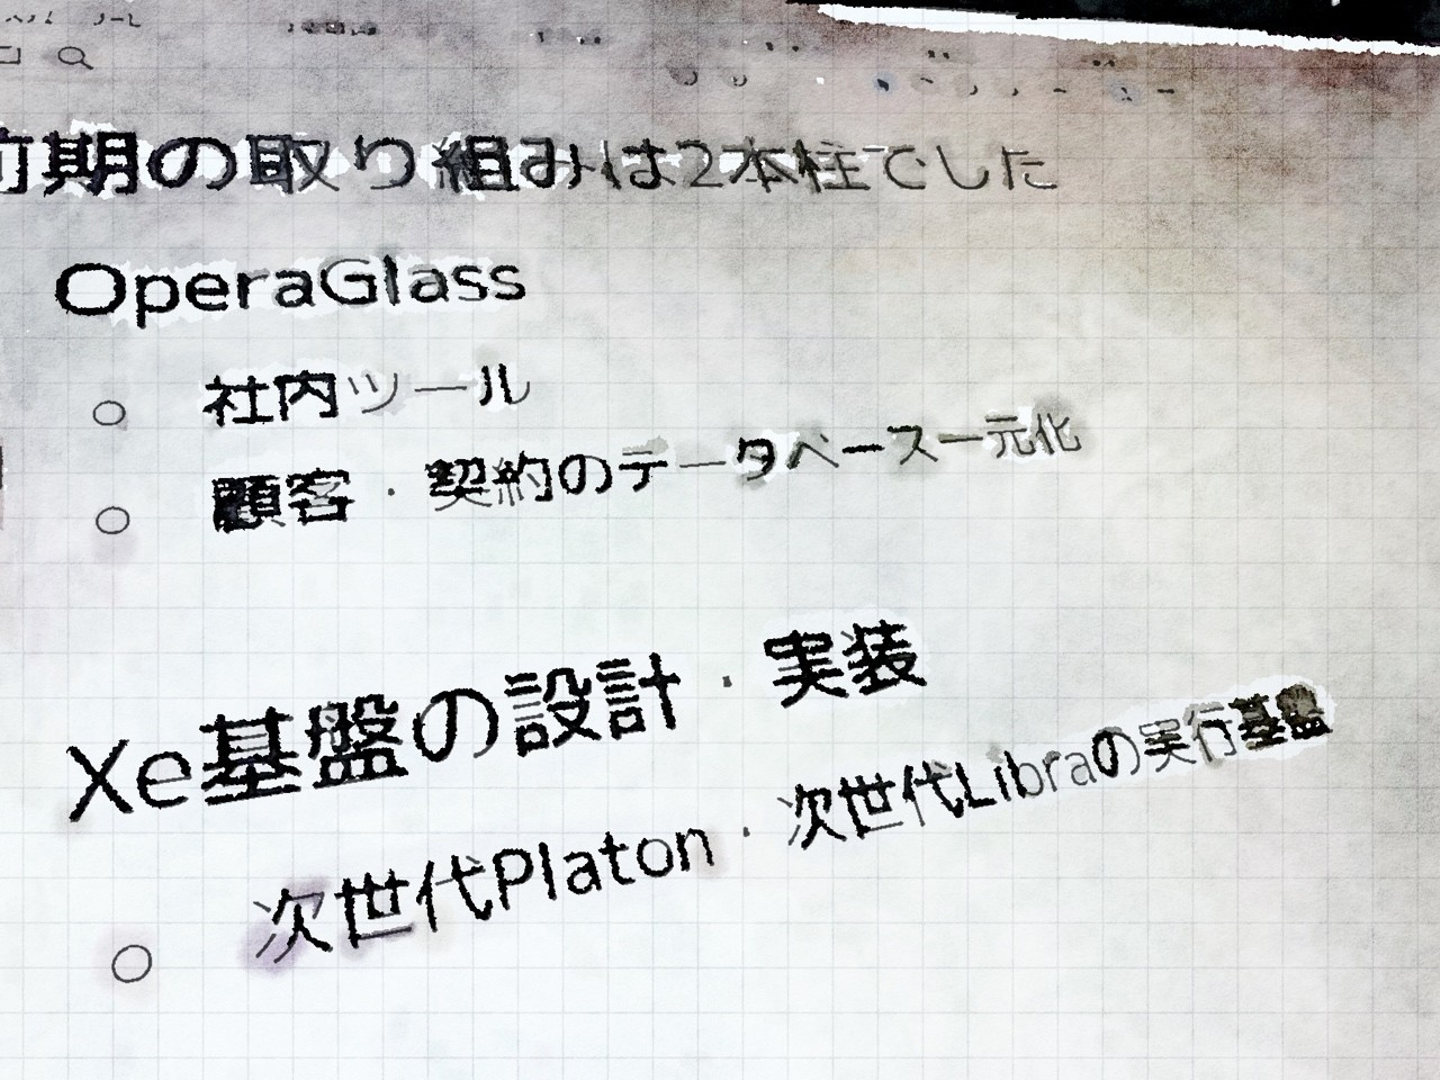 前期の取り組みは2本柱でした
OperaGlass
社内ツール
顧客・契約のデータベース一元化
Xe基盤の設計・実装
次世代Platon・次世代Libraの実行基盤